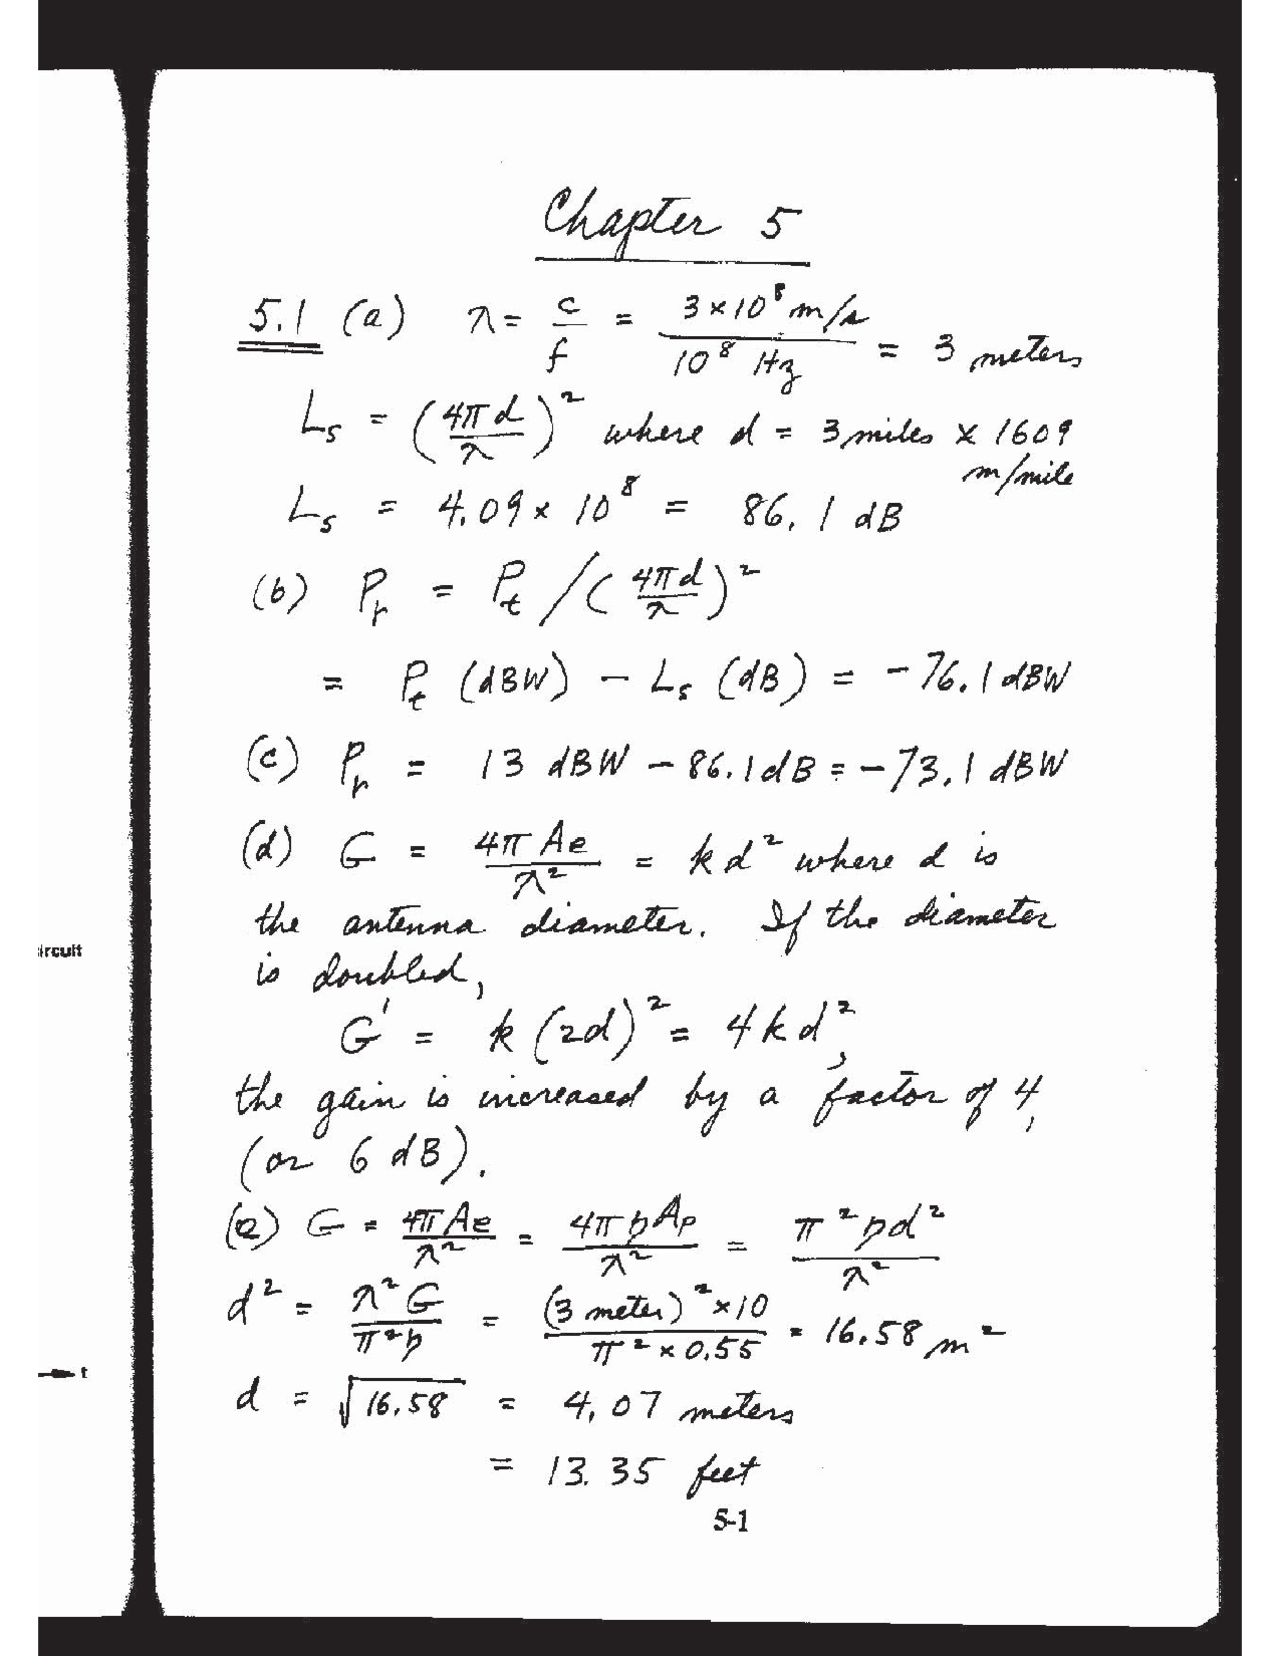 Chapter 5
5.1 (a) λ = c/f = 3×10⁸ m/s / 10⁸ Hz = 3 meters
Ls = (4πd/λ)² where d = 3 miles × 1609
m/mile
Ls = 4.09 × 10⁸ = 86.1 dB
(b) Pr = Pt /(4πd/λ)²
= Pt (dBW) − Ls (dB) = −76.1 dBW
(c) Pr = 13 dBW − 86.1 dB = −73.1 dBW
(d) G = 4π Ae/λ² = kd² where d is
the antenna diameter. If the diameter
is doubled,
G' = k (2d)² = 4kd²,
the gain is increased by a factor of 4,
(or 6 dB).
(e) G = 4πAe/λ² = 4πηAp/λ² = π²ηd²/λ²
d² = λ²G/π²η = (3 meter)² × 10 / π² × 0.55 = 16.58 m²
d = √16.58 = 4.07 meters
= 13.35 feet
5-1
ircuit
t